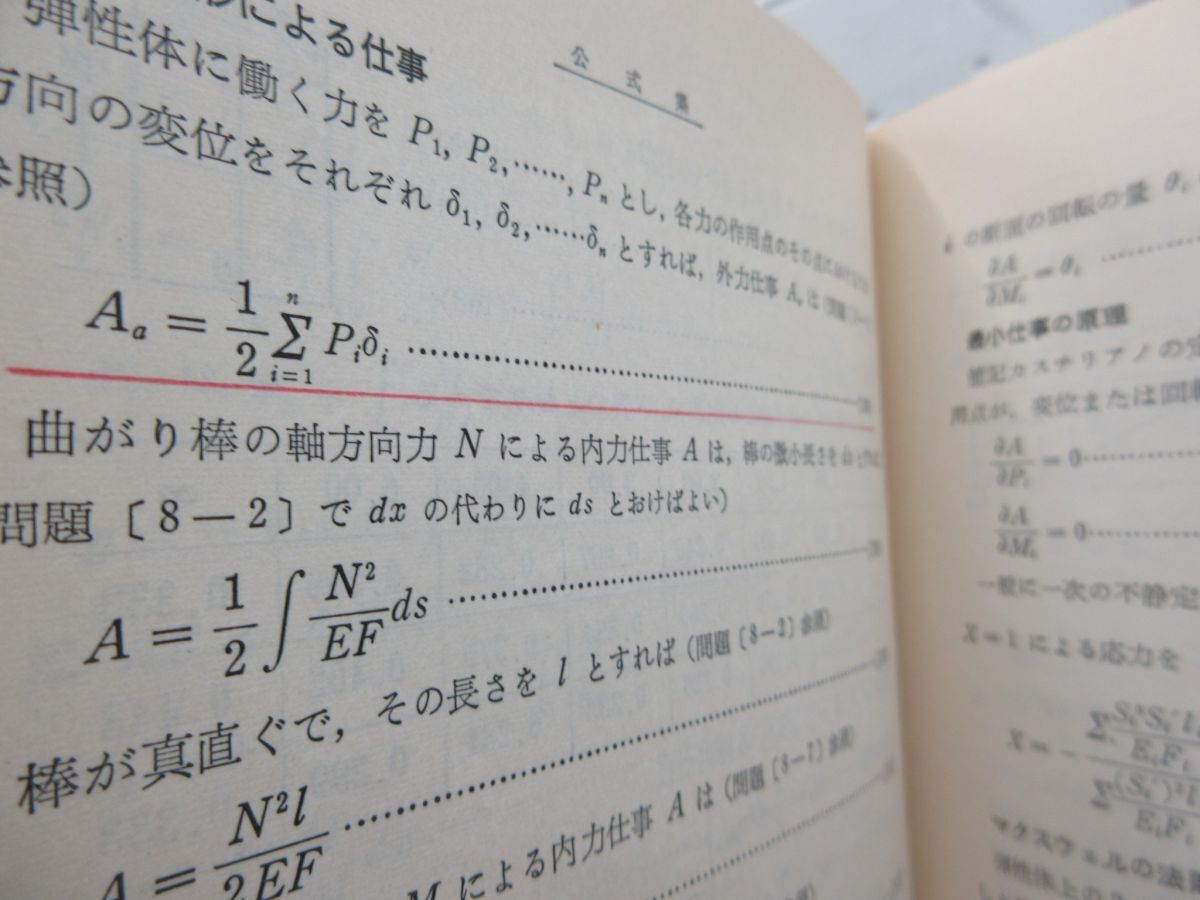 公式集
形による仕事
弾性体に働く力を P₁, P₂,……, Pₙ とし, 各力の作用点のその点に
方向の変位をそれぞれ δ₁, δ₂,……δₙ とすれば, 外力仕事 Aₐ は (問題
参照)
Aₐ = 1/2 Σ_{i=1}^{n} Pᵢδᵢ ……
曲がり棒の軸方向力 N による内力仕事 A は, 棒の微小長さを ds と
問題〔8—2〕で dx の代わりに ds とおけばよい)
A = 1/2 ∫ N²/EF ds ……
棒が真直ぐで, その長さを l とすれば (問題〔8—2〕参照)
A = N²l/2EF ……
M による内力仕事 A は (問題〔8—7〕参照)
の断面の回転の量 θᵢ
∂A/∂Mᵢ = θᵢ ……
最小仕事の原理
前記カスチリアノの定
用点が, 変位または回転
∂A/∂Pᵢ = 0……
∂A/∂Mᵢ = 0……
一般に一次の不静定
X=1 による応力を
マクスウェルの法則
弾性体上の